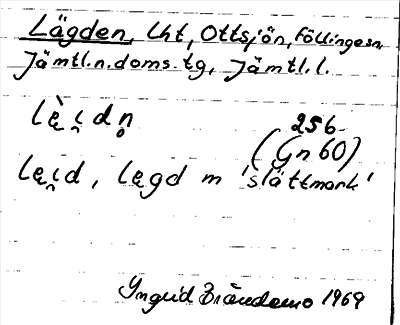 Lägden, lht, Ottsjön, Föllinge sn,
Jämtl.n.doms.tg, Jämtl.l.
lę̀i̯dn̥
256
(Gn 60)
lęi̯d, lęgd m 'slättmark'
Yngrid Brändemo 1969